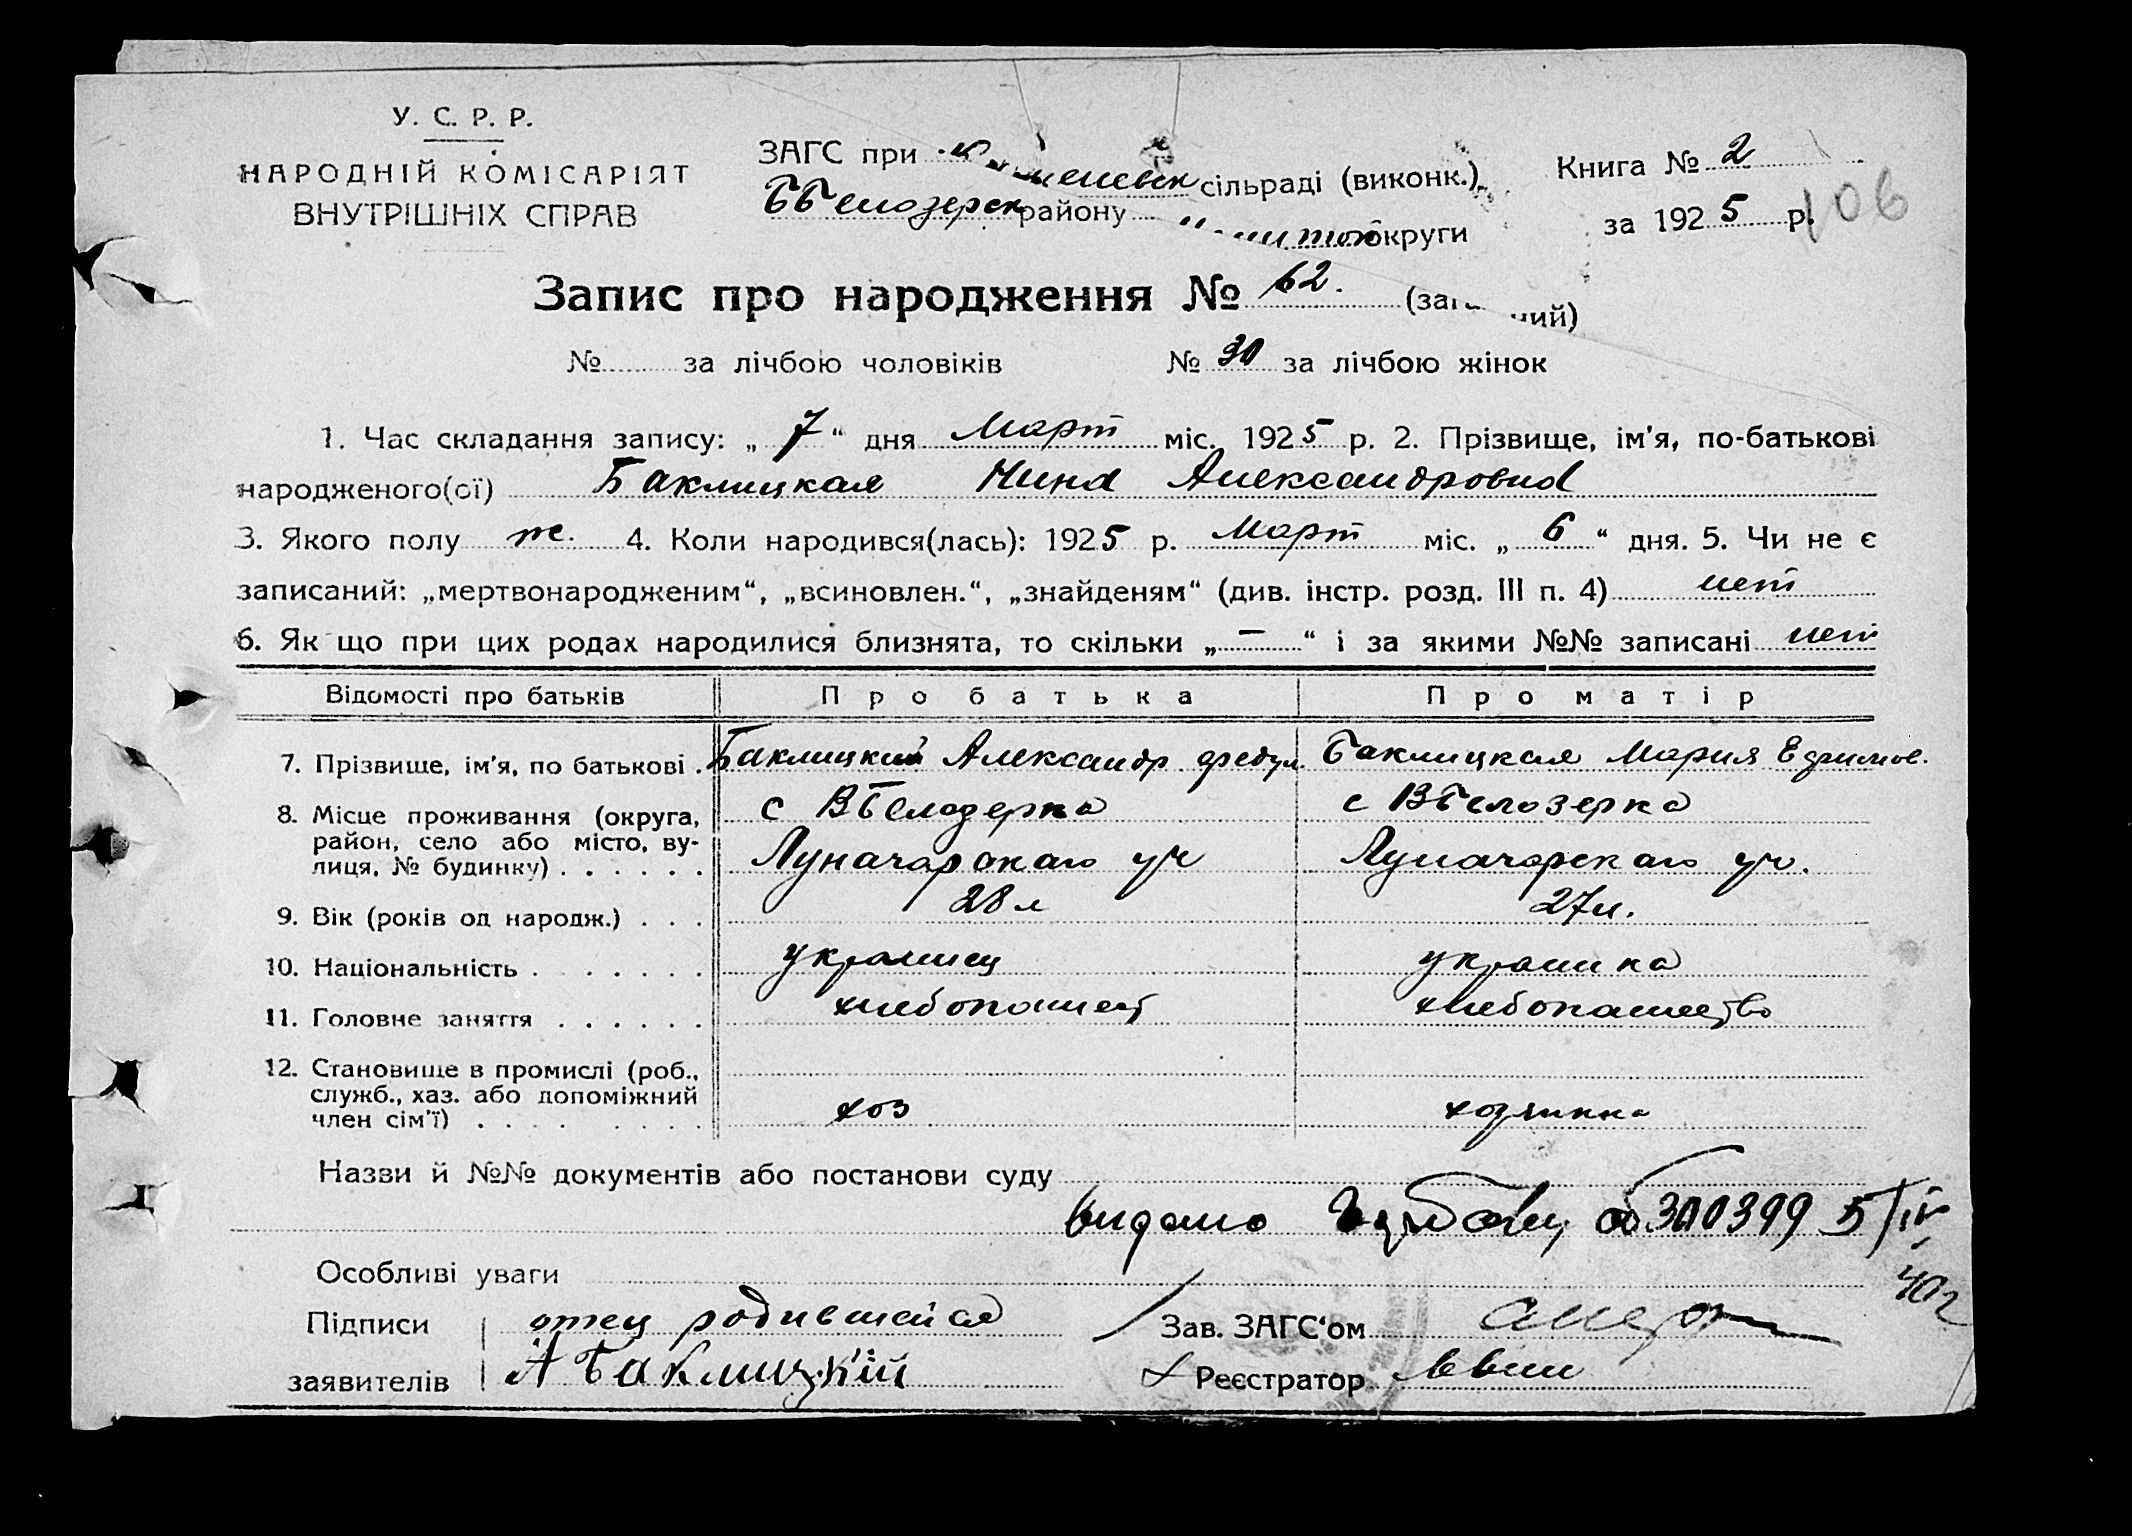 У. С. Р. Р.
НАРОДНІЙ КОМІСАРІЯТ
ВНУТРІШНІХ СПРАВ
ЗАГС при сільраді (виконк.)
ББелозерск району округи
Книга № 2
за 1925 р.
106
Запис про народження № 62.
№ за лічбою чоловіків № 30 за лічбою жінок
1. Час складання запису: „7“ дня Март міс. 1925 р. 2. Прізвище, ім'я, по-батькові
народженого(ої) Баклицкая Нина Александровна
3. Якого полу ж. 4. Коли народився(лась): 1925 р. Март міс. „6“ дня. 5. Чи не є
записаний: „мертвонародженим“, „всиновлен.“, „знайденям“ (див. інстр. розд. III п. 4) нет
6. Як що при цих родах народилися близнята, то скільки „—“ і за якими №№ записані нет
Відомості про батьків Про батька Про матір
7. Прізвище, ім'я, по батькові . Баклицкий Александр Баклицкая Мария Ефимов.
8. Місце проживання (округа, с ВБелозерка с ВБелозерка
район, село або місто, ву-
лиця, № будинку) . . . . . . Луначарскаго уч Луначарскаго уч.
9. Вік (років од народж.) . . . 28 л 27 л.
10. Національність . . . . . . . украинец украинка
11. Головне заняття . . . . . . хлебопашест хлебопашество
12. Становище в промислі (роб.,
служб., хаз. або допоміжний
член сім'ї) . . . . . . . . хоз хозяйка
Назви й №№ документів або постанови суду
видано 5/IV
40 г
Особливі уваги
Підписи отец родившейся Зав. ЗАГС'ом
заявителів А Баклицкій Реєстратор